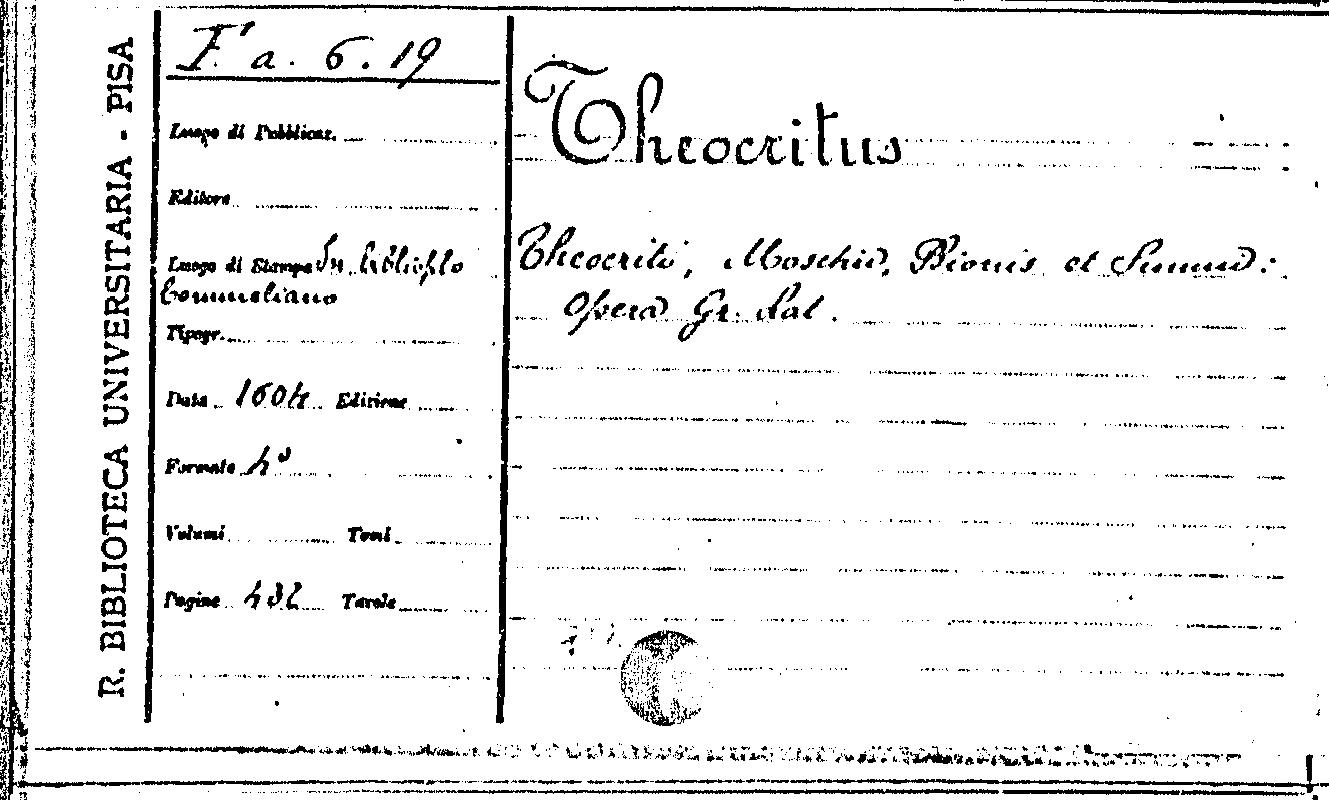 R. BIBLIOTECA UNIVERSITARIA - PISA
F a. 6. 19
Luogo di Pubblicaz.
Editore
Luogo di Stampa In bibliopolo
Commeliano
Tipogr.
Data 1604 Edizione
Formato 4º
Volumi Tomi
Pagine 432 Tavole
Theocritus
Theocriti, Moschi, Bionis et Simmii:
Opera Gr. Lat.